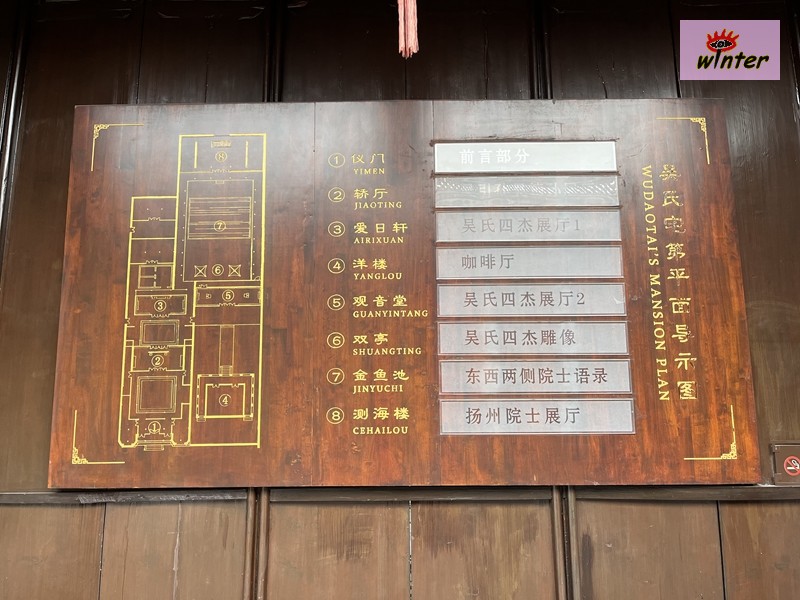 winter
① 仪门
YIMEN
② 轿厅
JIAOTING
③ 爱日轩
AIRIXUAN
④ 洋楼
YANGLOU
⑤ 观音堂
GUANYINTANG
⑥ 双亭
SHUANGTING
⑦ 金鱼池
JINYUCHI
⑧ 测海楼
CEHAILOU
前言部分
吴氏四杰展厅1
咖啡厅
吴氏四杰展厅2
吴氏四杰雕像
东西两侧院士语录
扬州院士展厅
吴氏宅第平面导示图
WUDAOTAI'S MANSION PLAN
⑧
⑦
⑥
⑤
③
②
④
①